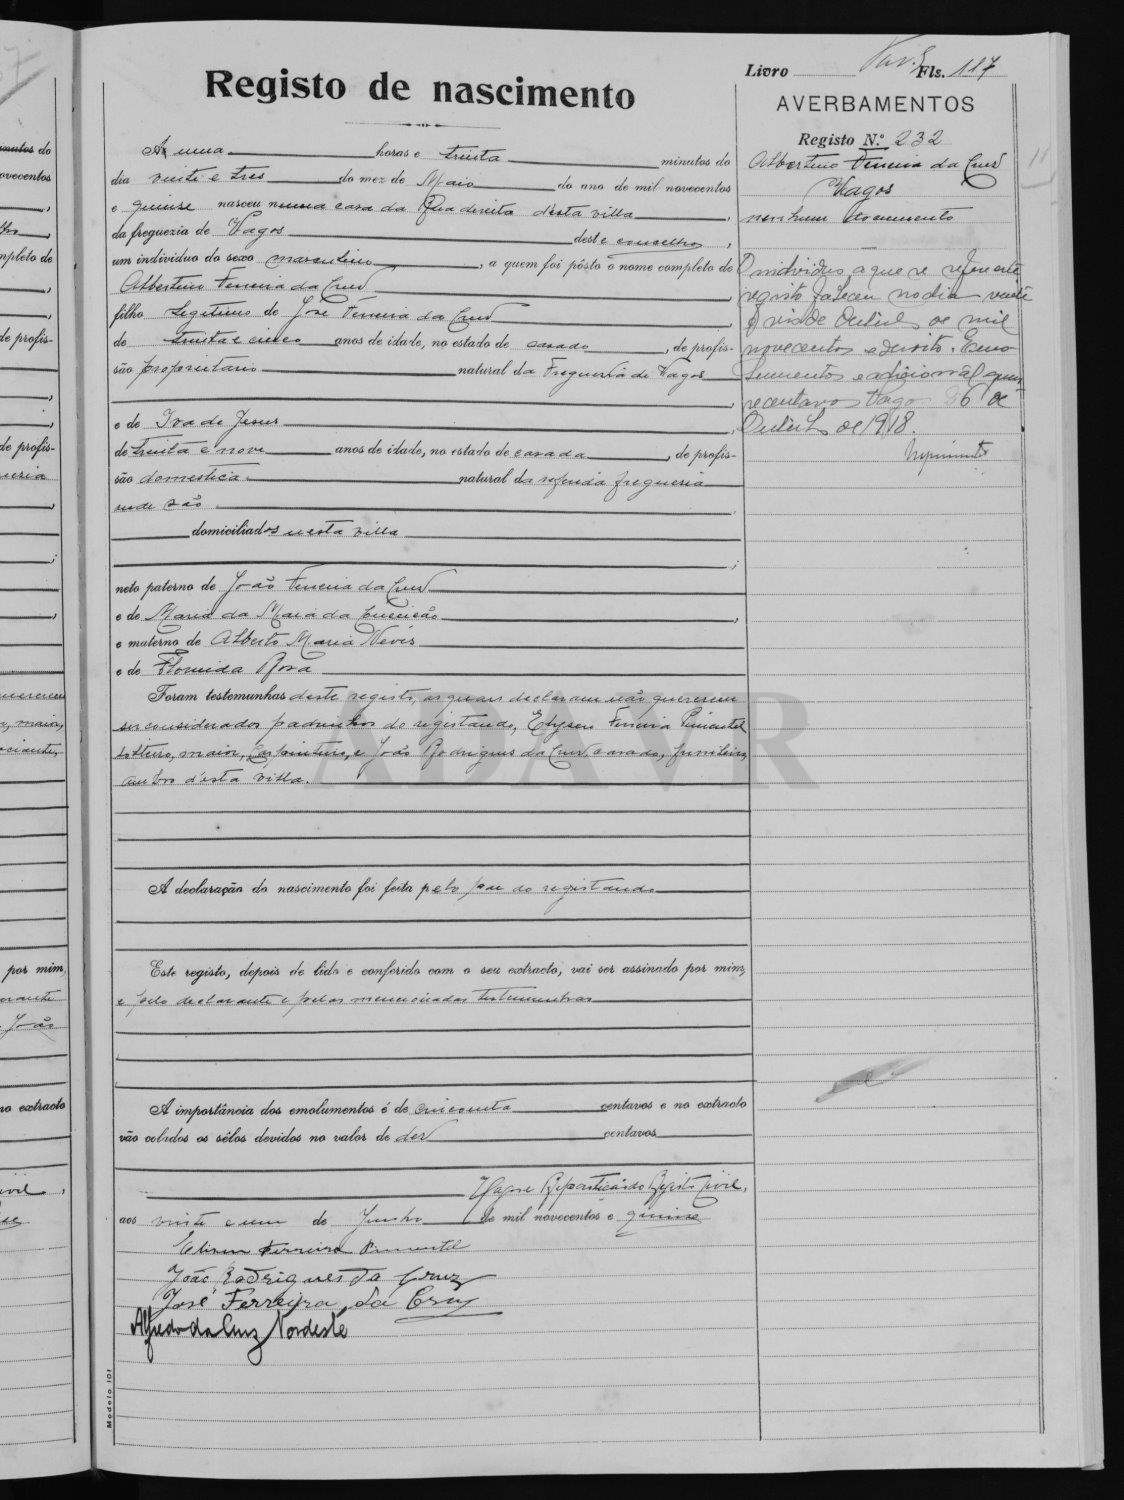 Livro Fls. 117
Registo de nascimento
AVERBAMENTOS
Registo N.º 232
Á uma horas e trinta minutos do
dia vinte e tres do mez de Maio do ano de mil novecentos
e quinse nasceu numa casa da Rua direita d'esta villa,
da freguezia de Vagos deste conselho,
um individuo do sexo masculino, a quem foi pôsto o nome completo de
Albertino Ferreira da Cruz,
filho legitimo de José Ferreira da Cruz,
de trinta e cinco anos de idade, no estado de casado, de profis-
são proprietario natural da Freguesia de Vagos,
e de Iva de Jesus,
de trinta e nove anos de idade, no estado de casada, de profis-
são domestica natural da referida freguesia
onde são
domiciliados nesta villa
;
neto paterno de João Ferreira da Cruz
e de Maria da Maia da Conceição,
e materno de Alberto Maria Neves
e de Florinda Rosa
Foram testemunhas deste registo, as quais declararam não quererem
ser considerados padrinhos do registando, Elyseu Ferreira Pimentel
solteiro, maior, Carpinteiro, e João Rodrigues da Cruz, casado, funileiro,
ambos d'esta villa.
A declaração do nascimento foi feita pelo pae do registando
Este registo, depois de lido e conferido com o seu extracto, vai ser assinado por mim,
e pelo declarante e pelas mencionadas testemunhas
A importância dos emolumentos é de cincoenta centavos e no extracto
vão colados os sêlos devidos no valor de dez centavos
Vagos e Repartição do Registo Civil,
aos vinte e um de Junho de mil novecentos e quinse
Eliseu Ferreira Pimentel
João Rodrigues da Cruz
José Ferreira da Cruz
Alfredo da Cruz Nordeste
Albertino Ferreira da Cruz
Vagos
nenhum documento
O individuo a que se refere este
registo faleceu no dia vinte
e seis de Outubro de mil
novecentos e desoito. Emo
lumentos e adicional quin
ze centavos Vagos 26 de
Outubro de 1918.
Modelo 101
ADAVR